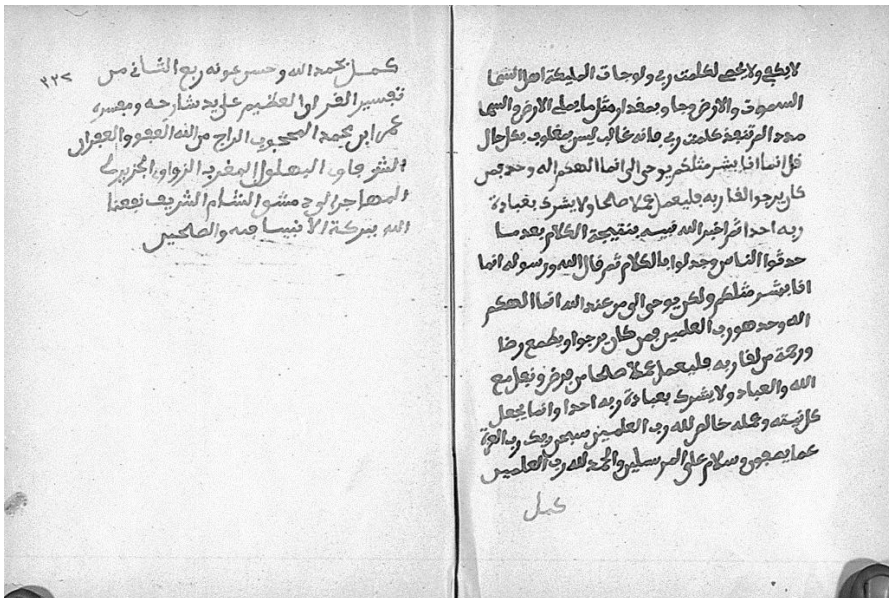 لا يكفي ولا يحصى لكلمت ربي ولو جات المليكة اهل السما
السموت والارض وجا وبمقدار مثل ما يملى الارض والسما
مدد الم تنفد كلمت ربي فانه غالب ليس بمغلوب بكل حال
قل انما انا بشر مثلكم يوحى الى انما الهكم اله وحد فمن
كان يرجوا لقا ربه فليعمل عملا صالحا ولا يشرك بعبادة
ربه احدا ثم اخبر الله نبيه بنتيجة الكلام بعد ما
حدثوا الناس وجدلوا بالكلام ثم قال الله ورسوله انما
انا بشر مثلكم ولكن يوحى الى من عند الله انما الهكم
اله وحد هو رب العلمين فمن كان يرجوا ويطمع رضا
ورحمة من لقا ربه فليعمل عملا صالحا من فرض ونفل مع
الله والعباد ولا يشرك بعبادة ربه احدا وانما يجعل
كل نيته وعمله خالص لله رب العلمين سبحن ربك رب العزة
عما يصفون وسلام على المرسلين والحمد لله رب العلمين
كمل
٣٣٢
كمل بحمد الله وحسن عونه ربع الثاني من
تفسير القران العظيم على يد شارحه ومفسره
عمر ابن محمد المحجوب الراج من الله العفو والغفران
الشرجاوى البهلول المغربي الزواوي الجزيري
المهاجر الى دمشق الشام الشريف نفعنا
الله ببركة الأنبيا فيه والصالحين